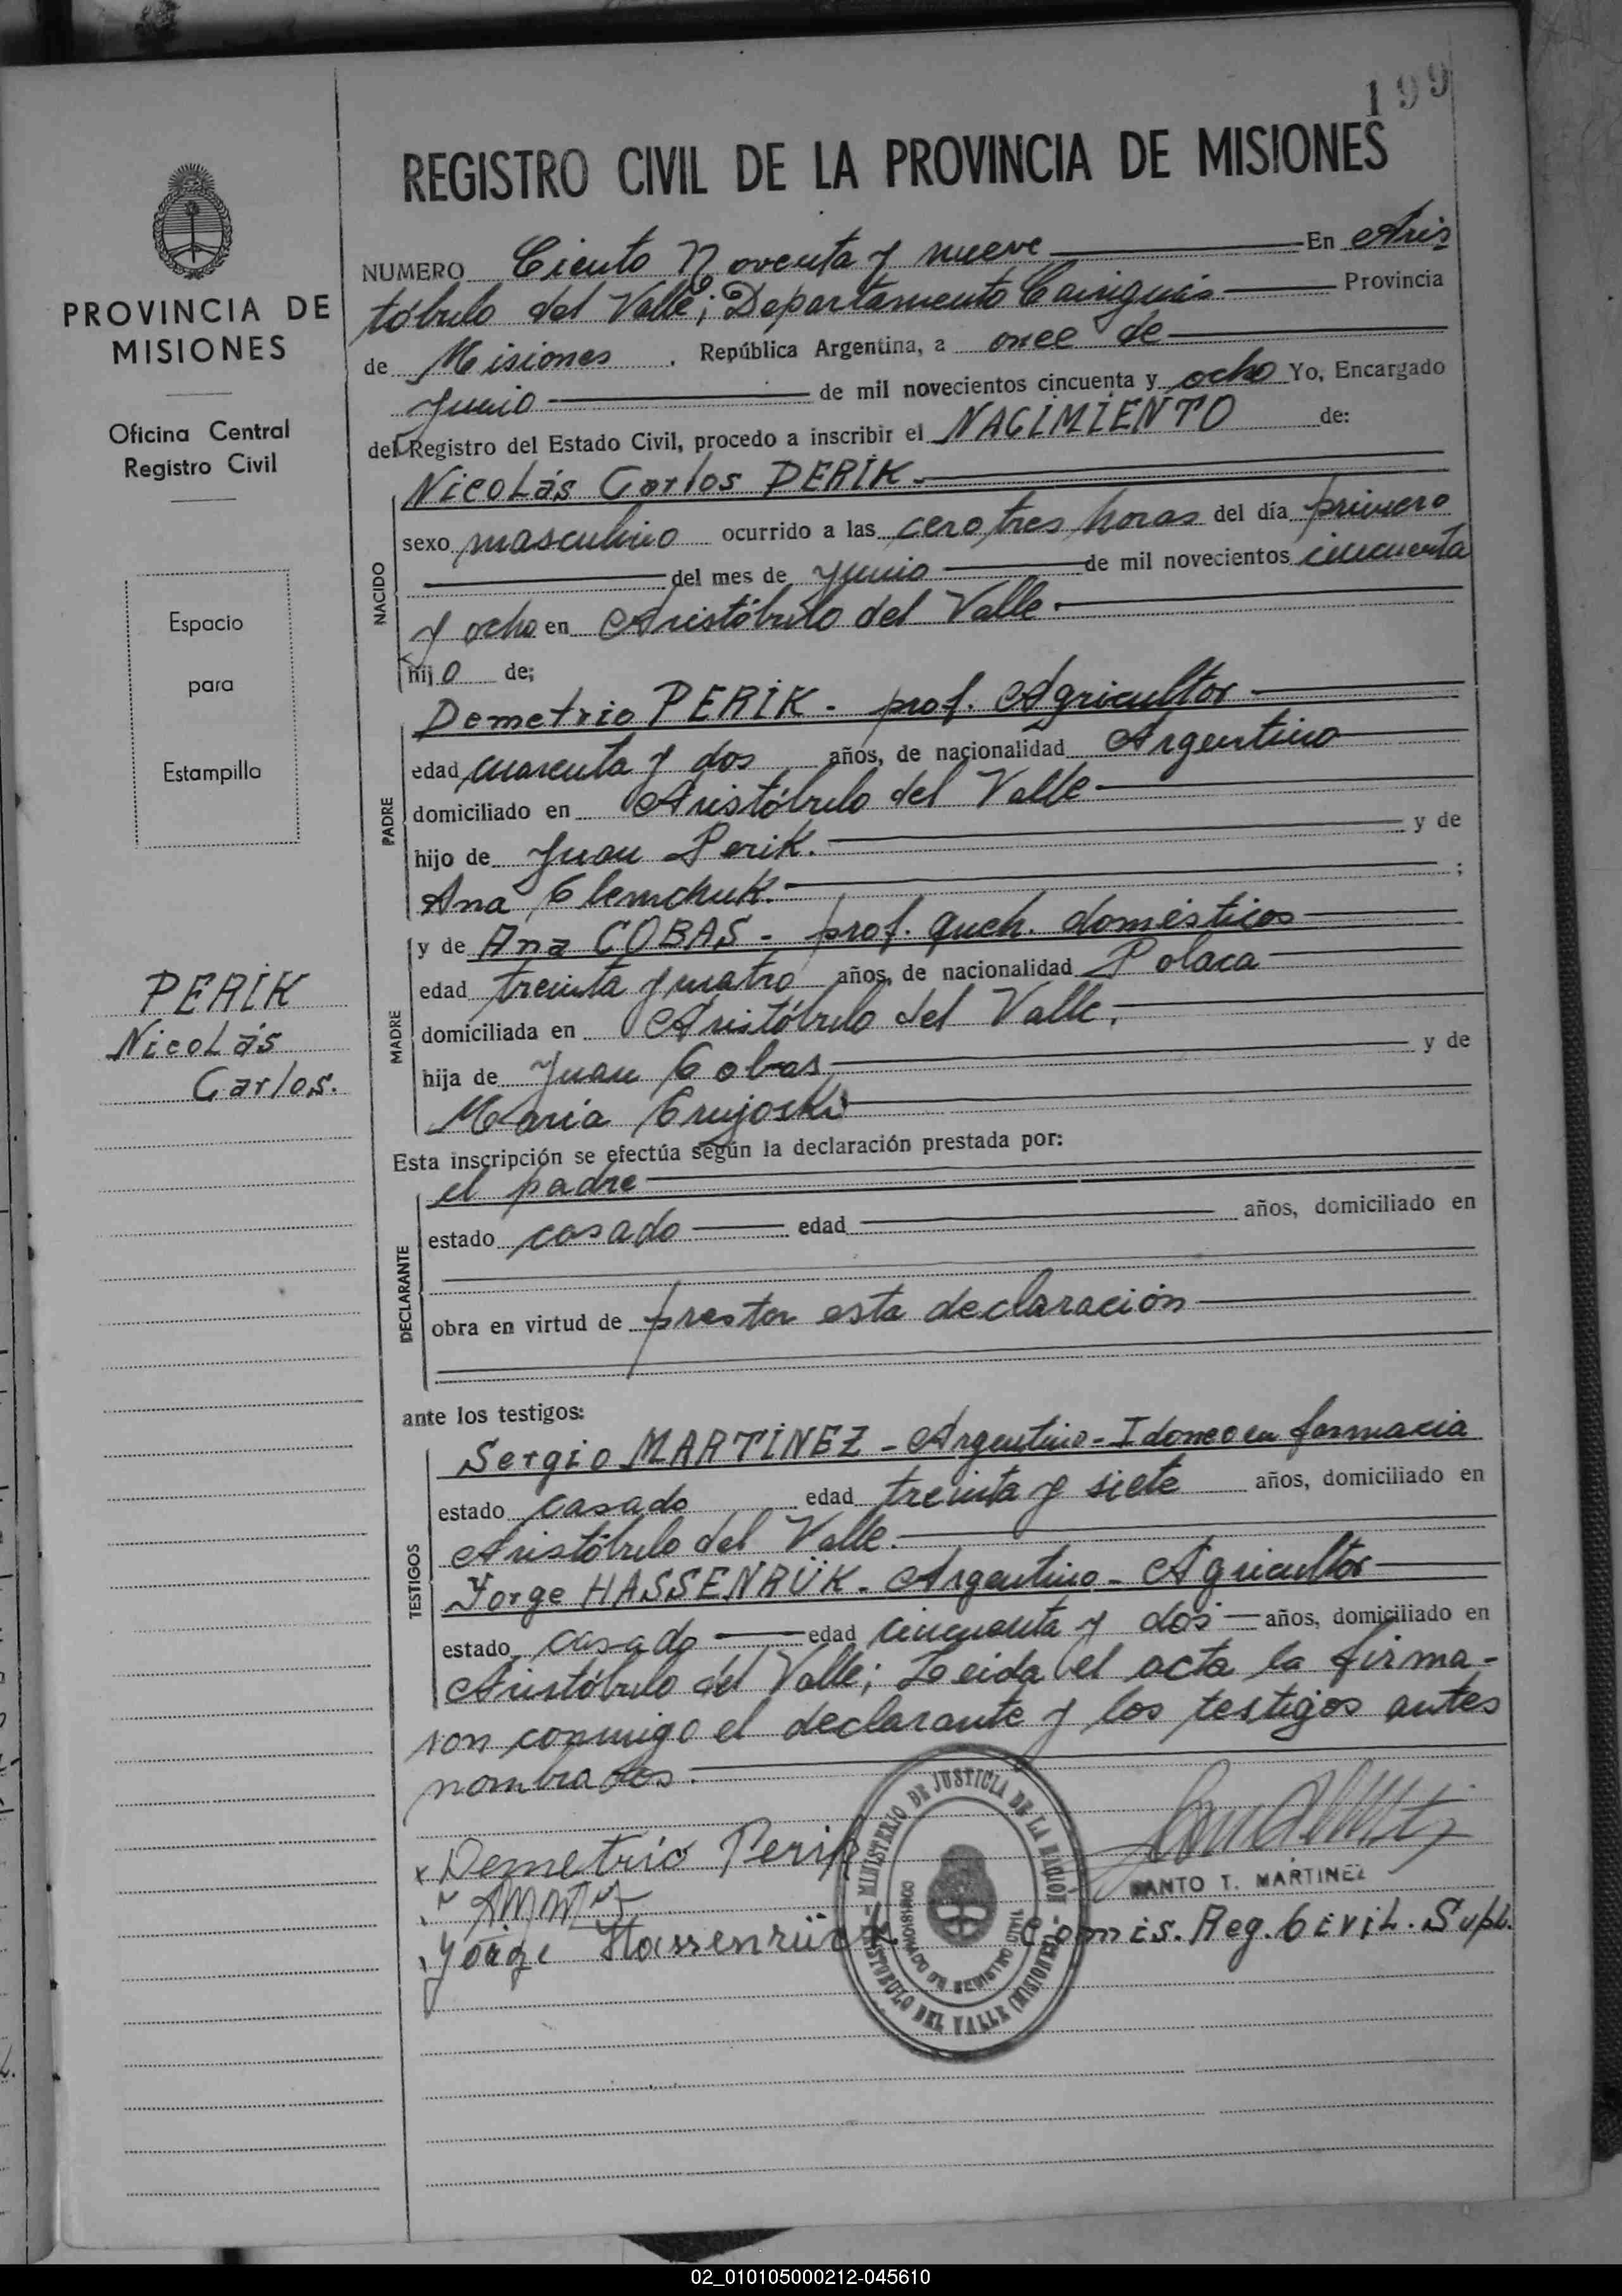 199
REGISTRO CIVIL DE LA PROVINCIA DE MISIONES
PROVINCIA DE
MISIONES
Oficina Central
Registro Civil
Espacio
para
Estampilla
PERIK
Nicolás
Carlos.
NUMERO Ciento Noventa y nueve En Aris
tóbulo del Valle; Departamento Cainguás Provincia
de Misiones . República Argentina, a once de
Junio de mil novecientos cincuenta y ocho Yo, Encargado
del Registro del Estado Civil, procedo a inscribir el NACIMIENTO de:
NACIDO
Nicolás Carlos PERIK.
sexo masculino ocurrido a las cero tres horas del día primero
del mes de Junio de mil novecientos cincuenta
y ocho en Aristóbulo del Valle.
hijo de;
PADRE
Demetrio PERIK. prof. Agricultor
edad cuarenta y dos años, de nacionalidad Argentino
domiciliado en Aristóbulo del Valle
hijo de Juan Perik. y de
Ana Clemchuk. ;
MADRE
y de Ana COBAS - prof. queh. domésticos
edad treinta y cuatro años, de nacionalidad Polaca
domiciliada en Aristóbulo del Valle.
hija de Juan Cobas y de
Maria Crujoski
Esta inscripción se efectúa según la declaración prestada por:
DECLARANTE
el padre
estado casado edad años, domiciliado en
obra en virtud de prestar esta declaración
ante los testigos:
TESTIGOS
Sergio MARTINEZ - Argentino - Idoneo en farmacia
estado casado edad treinta y siete años, domiciliado en
Aristóbulo del Valle.
Jorge HASSENRÜK. Argentino - Agricultor
estado casado edad cincuenta y dos años, domiciliado en
Aristóbulo del Valle; Leida el acta la firma-
ron conmigo el declarante y los testigos antes
nombrados.
Demetrio Perik
Jorge Hassenrück
MINISTERIO DE JUSTICIA DE LA NACIÓN
COMISIONADO DE REGISTRO CIVIL
ARISTOBULO DEL VALLE (MISIONES)
SANTO T. MARTINEZ
Comis. Reg. Civil. Supl.
02_010105000212-045610